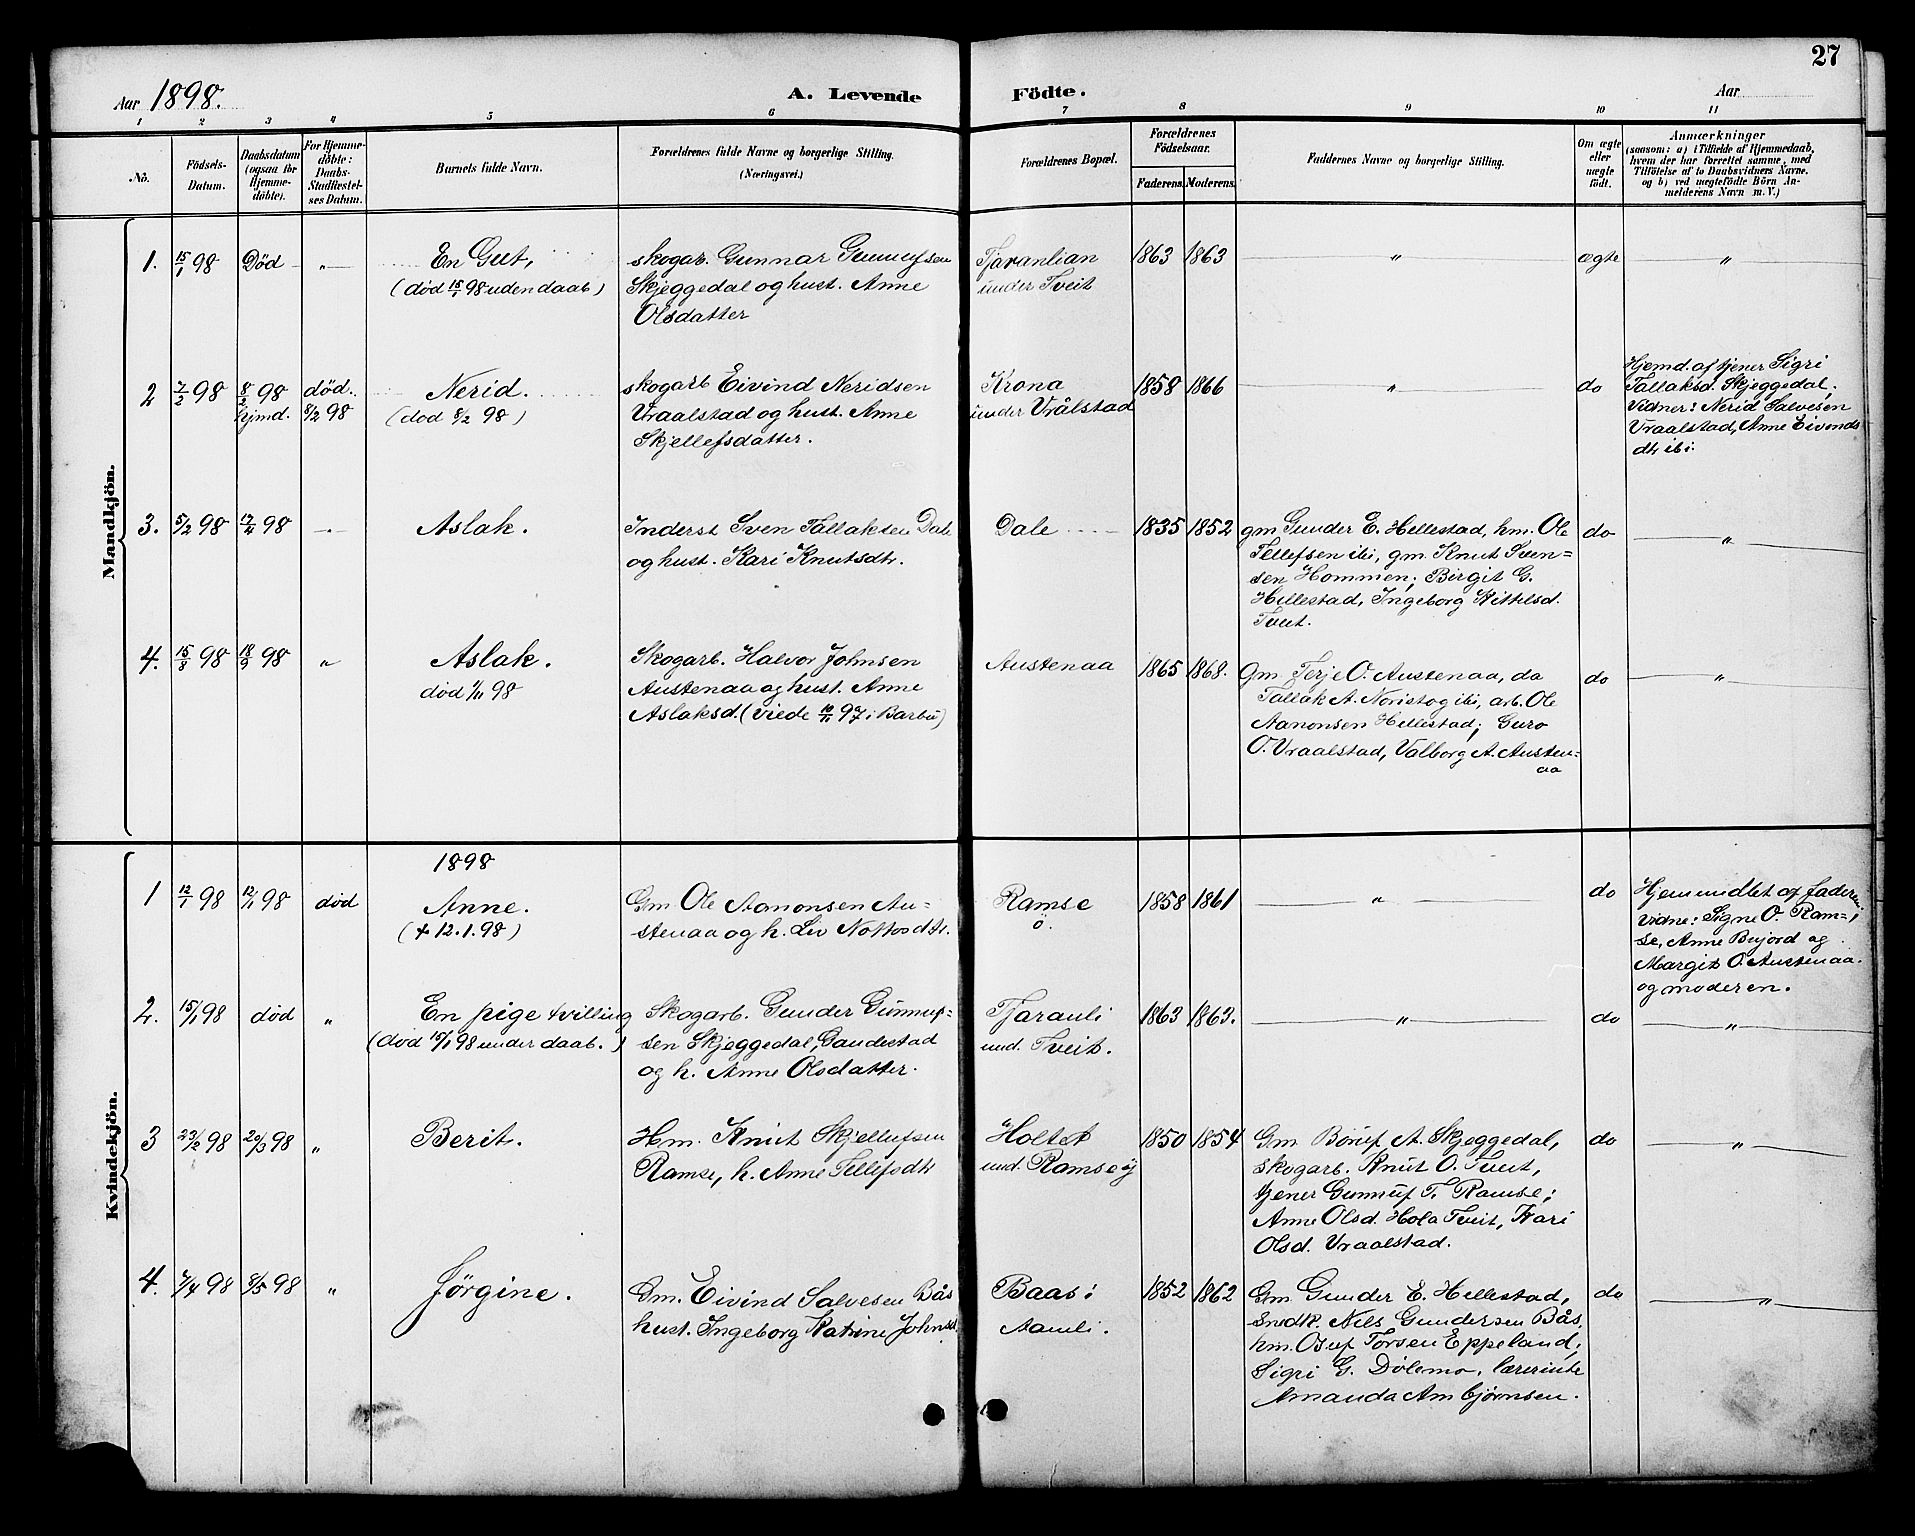 27
Aar 1898. A. Levende Födte. Aar
1 2 3 4 5 6 7 8 9 10 11
No. Födsels-Datum. Daabsdatum (ogsaa for Hjemmedöbte). For Hjemmedöbte: Daabs-Stadfestelses Datum. Barnets fulde Navn. Forældrenes fulde Navne og borgerlige Stilling. (Næringsvei.) Forældrenes Bopæl. Forældrenes Födselsaar. Faderens. Moderens. Faddernes Navne og borgerlige Stilling. Om ægte eller uægte födt. Anmærkninger (saasom: a) i Tilfælde af Hjemmedaab, hvem der har forrettet samme, med Tilföielse af to Daabsvidners Navne, og b) ved uægtefödte Börn Anmelderens Navn m. V.)
Mandkjön.
1. 15/1 98 Død „ En Gut, skogarb. Gunnar Gunnufsen Tjaranlian 1863 1863 „ ægte „
(død 15/1 98 uden daab) Skjeggedal og hust. Anne under Tveit
Olsdatter
2 7/2 98 8/2 98 død. Nerid. skogarb Eivind Neridsen Krona 1858 1866 „ do Hjemd. af tjener Sigri
Hjmd. 8/2 98 (død 8/2 98) Vraalstad og hust. Anne under Vrålstad Tallaksd. Skjeggedal.
Skjellefsdatter. Vidner: Nerid Salvesen
Vraalstad, Anne Eivends
dtr ibi.
3. 5/2 98 17/4 98 Aslak. Inderst Sven Tallaksen Dale Dale 1835 1852 gm Gunder E. Hellestad, hm. Ole do „
og hust. Kari Knutsdtr. Tellefsen ibi, gm. Knut Sven=
sen Hommen; Birgit G.
Hellestad, Ingeborg Kittelsd.
Tveit.
4. 15/8 98 18/9 98 „ Aslak. Skogarb. Halvor Johnsen Austenaa 1865 1868. Gm Terje O. Austenaa, da do „
død 1/11 98 Austenaa og hust. Anne Tallak A. Noristog ibi, arb. Ole
Aslaksd. (viede 10/11 97 i Barbu) Aanonsen Hellestad; Guro
O. Vraalstad, Valborg A. Austen=
aa
Kvindekjön.
1898
1 12/1 98 12/1 98 død Anne. Gm Ole Aanonsen Au= Ramse 1858 1861 „ do Hjemmdbt af faderen
(+ 12.1.98) stenaa og h. Liv Nottosdtr. ö. vidne: Signe O. Ram=
se, Anne Bujord og
Margit O. Austenaa.
og moderen.
2. 15/1 98 død „ En pige tvilling Skogarb. Gunder Gunnuf= Tjaranli 1863 1863. „ do „
(død 15/1 98 under daab.) sen Skjeggedal, Gandestad und. Tveit.
og h. Anne Olsdatter.
3 23/2 98 20/3 98 „ Berit. Hm. Knut Skjellufsen Holtet 1850 1854 Gm Boruf A. Skjeggedal, do „
Ramse, h. Anne Tellefsdtr und. Ramse ÿ skogarb. Knut O. Tveit,
tjener Gunnuf T. Ramse;
Anne Olsd. Hola Tveit, Kari
Olsd. Vraalstad.
4. 7/4 98 8/5 98 „ Jørgine. Gm. Eivind Salvesen Bås Baas i 1852 1862 Gm Gunder E. Hellestad, do „
hust. Ingeborg Katrine Johnsd. Aamli. Snedk. Nils Gundersen Bås
hm. Osuf Torsen Eppeland;
Sigri G. Dölemo, lærerinde
Amanda Ambjørnsen.